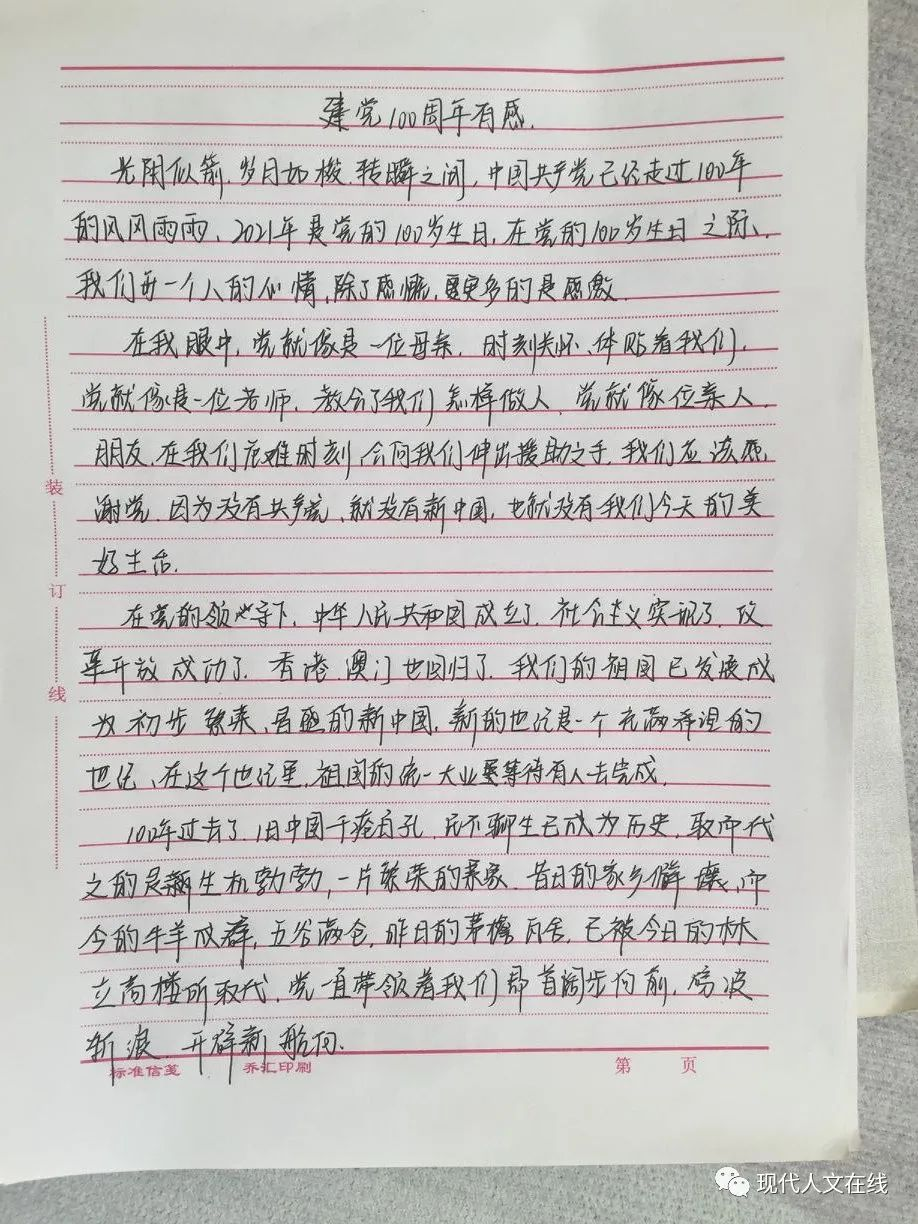 建党100周年有感.
光阴似箭,岁月如梭,转瞬之间,中国共产党已经走过100年
的风风雨雨、2021年是党的100岁生日,在党的100岁生日之际、
我们每一个人的心情,除了感慨,更多的是感激.
在我眼中,党就像是一位母亲,时刻关怀、体贴着我们,
党就像是一位老师,教会了我们怎样做人,党就像位亲人,
朋友,在我们危难时刻,会向我们伸出援助之手,我们应该感
谢党,因为没有共产党、就没有新中国,也就没有我们今天的美
好生活.
在党的领导下,中华人民共和国成立了,社会主义实现了,改
革开放成功了,香港、澳门也回归了,我们的祖国已发展成
为初步繁荣、昌盛的新中国,新的世纪是一个充满希望的
世纪、在这个世纪里,祖国的统一大业要等待有人去完成,
100年过去了,旧中国千疮百孔,民不聊生已成为历史,取而代
之的是新生机勃勃,一片繁荣的景象,昔日的家乡僻壤,而
今的牛羊成群,五谷满仓,昨日的茅檐瓦舍,已被今日的林
立高楼所取代,党一直带领着我们昂首阔步向前,劈波
斩浪,开辟新航向.
装
订
线
标准信笺
乔汇印刷
第 页
现代人文在线